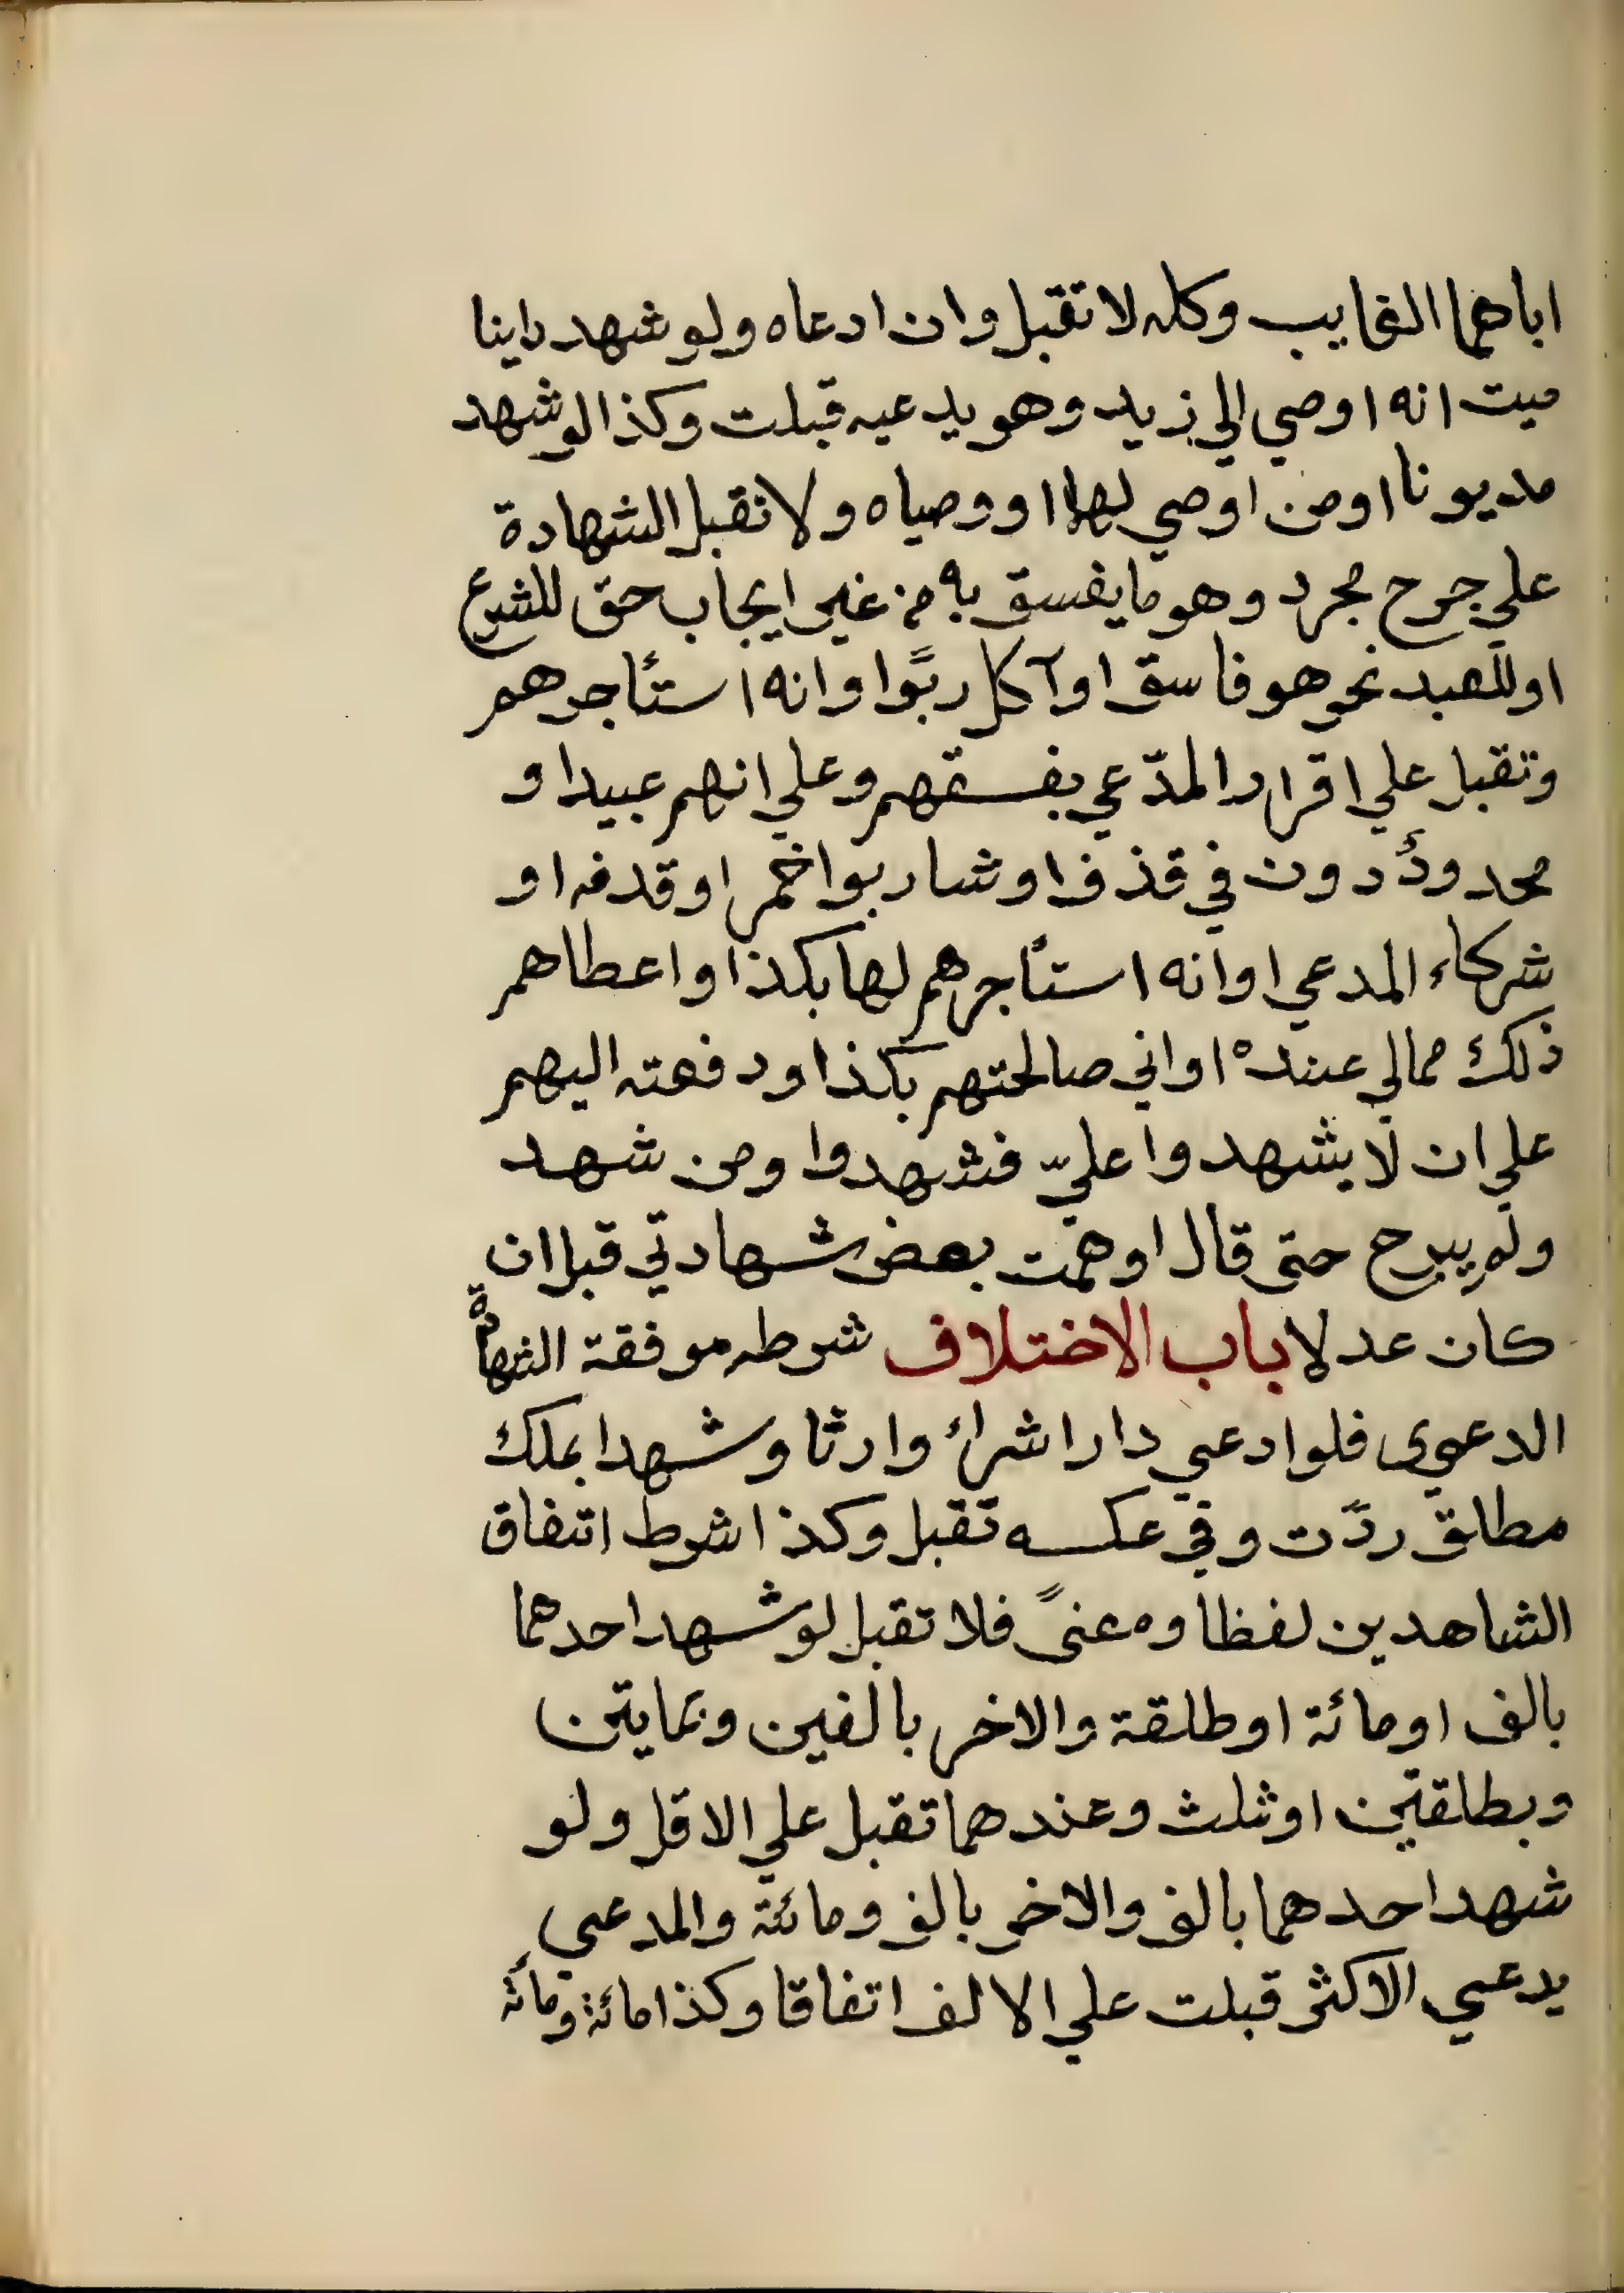 اباهما الغايب وكله لا تقبل وان ادعاه ولو شهد داينا
ميت انه اوصي الي زيد وهو يدعيه قبلت وكذا لو شهد
مديونا او من اوصي لهما او وصياه ولا تقبل الشهادة
علي جرح مجرد وهو ما يفسق به من غير ايجاب حق للشرع
او للعبد نحو هو فاسق او آكل ربًوا او انه استئاجرهم
وتقبل علي اقرار المدّعي بفسقهم وعلي انهم عبيد او
محدودُدون في قذف او شاربوا خمر او قدفه او
شركاء المدعي او انه استأجرهم لها بكذا واعطاهم
ذلك ممالي عنده او اني صالحتهم بكذا ودفعته اليهم
علي ان لا يشهدوا عليّ فشهدوا ومن شهد
ولم يبرح حتى قال اوهمت بعض شهادتي قبل ان
كان عدلا باب الاختلاف شرطه موفقة الشهادة
الدعوى فلو ادعي دارا شراء وارثا وشهدا بملك
مطلق ردّت وفي عكسه تقبل وكذا شرط اتفاق
الشاهدين لفظا ومعنىً فلا تقبل لو شهد احدهما
بالف او مائة او طلقة والاخر بالفين وبمايتين
وبطلقتين او ثلث وعندهما تقبل علي الاقل ولو
شهد احدهما بالف والاخر بالف ومائة والمدعي
يدعي الاكثر قبلت علي الالف اتفاقا وكذا مائة ومائة